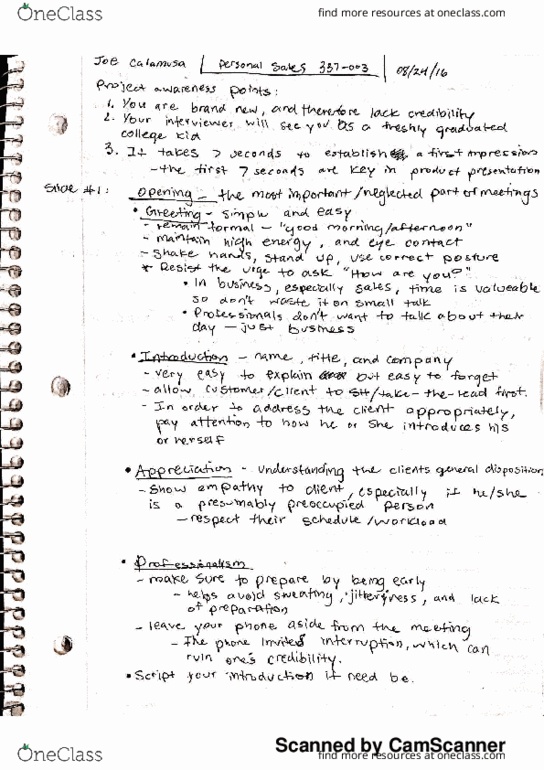 OneClass
find more resources at oneclass.com
Joe Calamusa | Personal Sales 337-003 | 08/24/16
Project awareness points:
1. You are brand new, and therefore lack credibility
2. Your interviewer will see you as a freshly graduated
college kid
3. It takes 7 seconds to establish a first impression
- the first 7 seconds are key in product presentation
Slide #1: Opening - the most important/neglected part of meetings
• Greeting - simple and easy
- remain formal - "good morning/afternoon"
- maintain high energy, and eye contact
- Shake hands, stand up, use correct posture
* Resist the urge to ask "How are you?"
• In business, especially sales, time is valueable
so don't waste it on small talk
• Professionals don't want to talk about their
day - just business
• Introduction - name, title, and company
- very easy to explain but easy to forget
- allow customer/client to sit/take-the-lead first.
- In order to address the client appropriately,
pay attention to how he or she introduces his
or herself
• Appreciation - understanding the clients general disposition
- Show empathy to client, especially if he/she
is a presumably preoccupied person
- respect their schedule/workload
• Professionalism
- make sure to prepare by being early
- helps avoid sweating, jitteryness, and lack
of preparation
- leave your phone aside from the meeting
- The phone invites interruption, which can
ruin one's credibility.
• Script your introduction if need be.
Scanned by CamScanner
OneClass
find more resources at oneclass.com